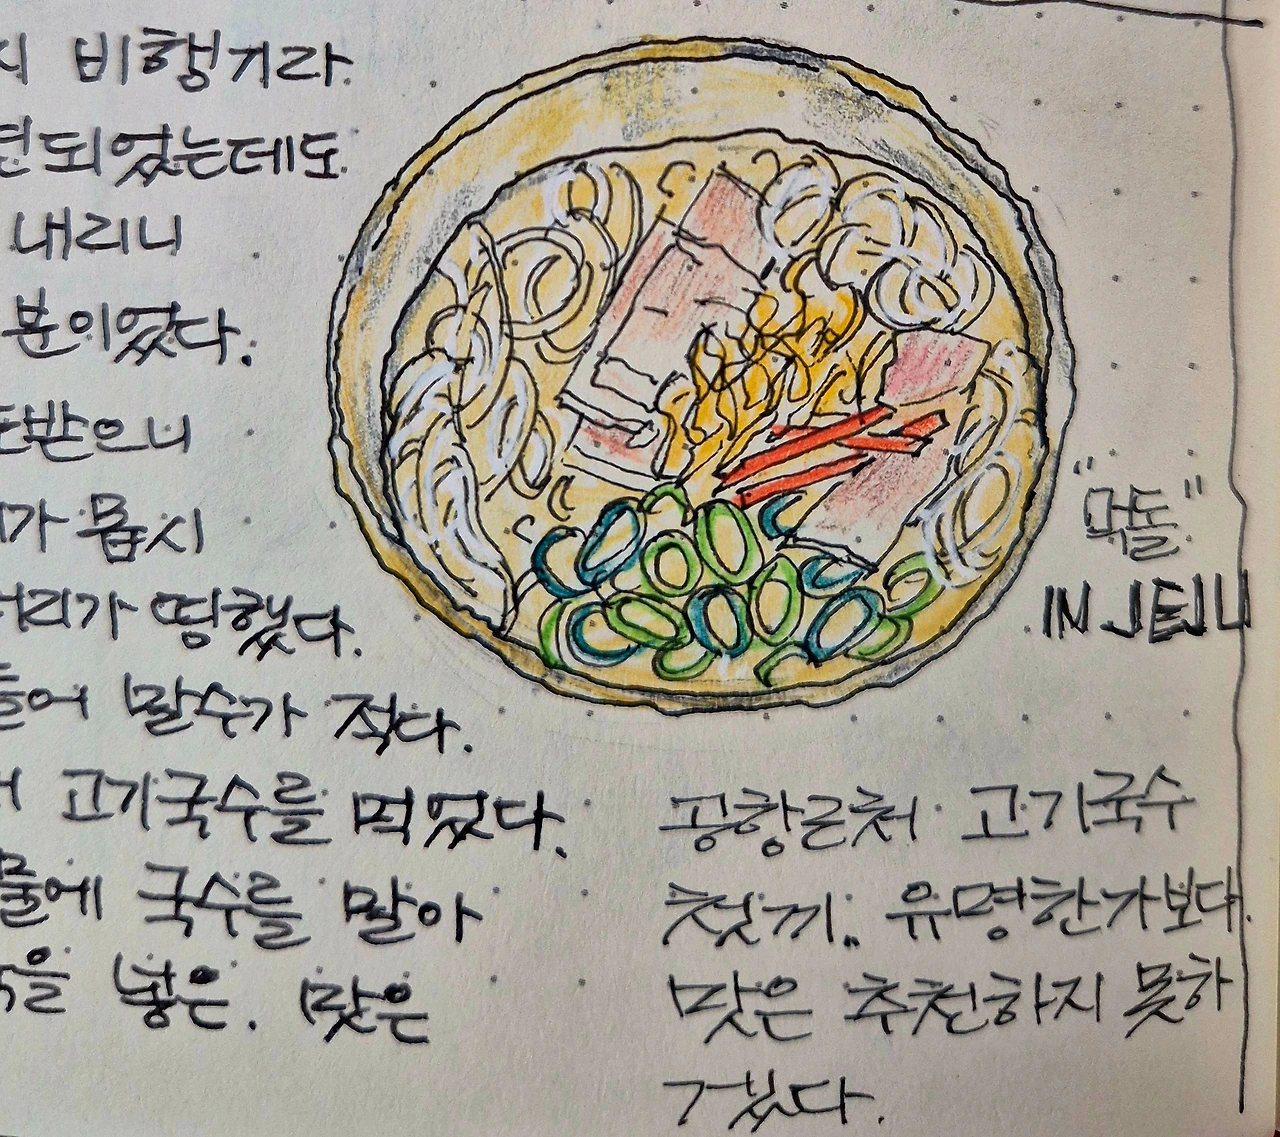 지 비행기라.
되었는데도
내리니
분이었다.
받으니
가 몹시
머리가 띵했다.
들어 말수가 적다.
서 고기국수를 먹었다.
물에 국수를 말아
을 넣은. 맛은
IN JEJU
공항근처 고기국수
첫끼.. 유명한가보다.
맛은 추천하지 못하
겠다.